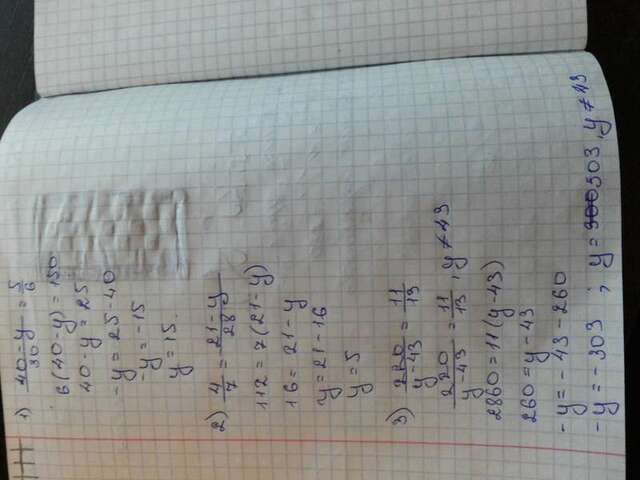 1) (40-y)/30 = 5/6
6(40-y) = 150
40-y = 25
-y = 25-40
-y = -15
y = 15.
2) 4/7 = (21-y)/28
112 = 7(21-y)
16 = 21-y
y = 21-16
y = 5
3) 220/(y-43) = 11/13
220/(y-43) = 11/13, y≠43
2860 = 11(y-43)
260 = y-43
-y = -43-260
-y = -303 ; y = 303, y≠43